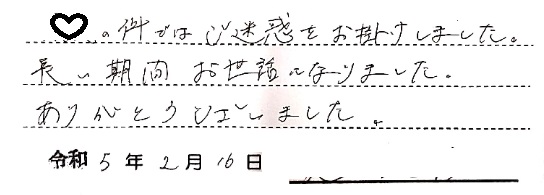 ♡の件ではご迷惑をお掛けしました。
長い期間お世話になりました。
ありがとうございました。
令和5年2月16日